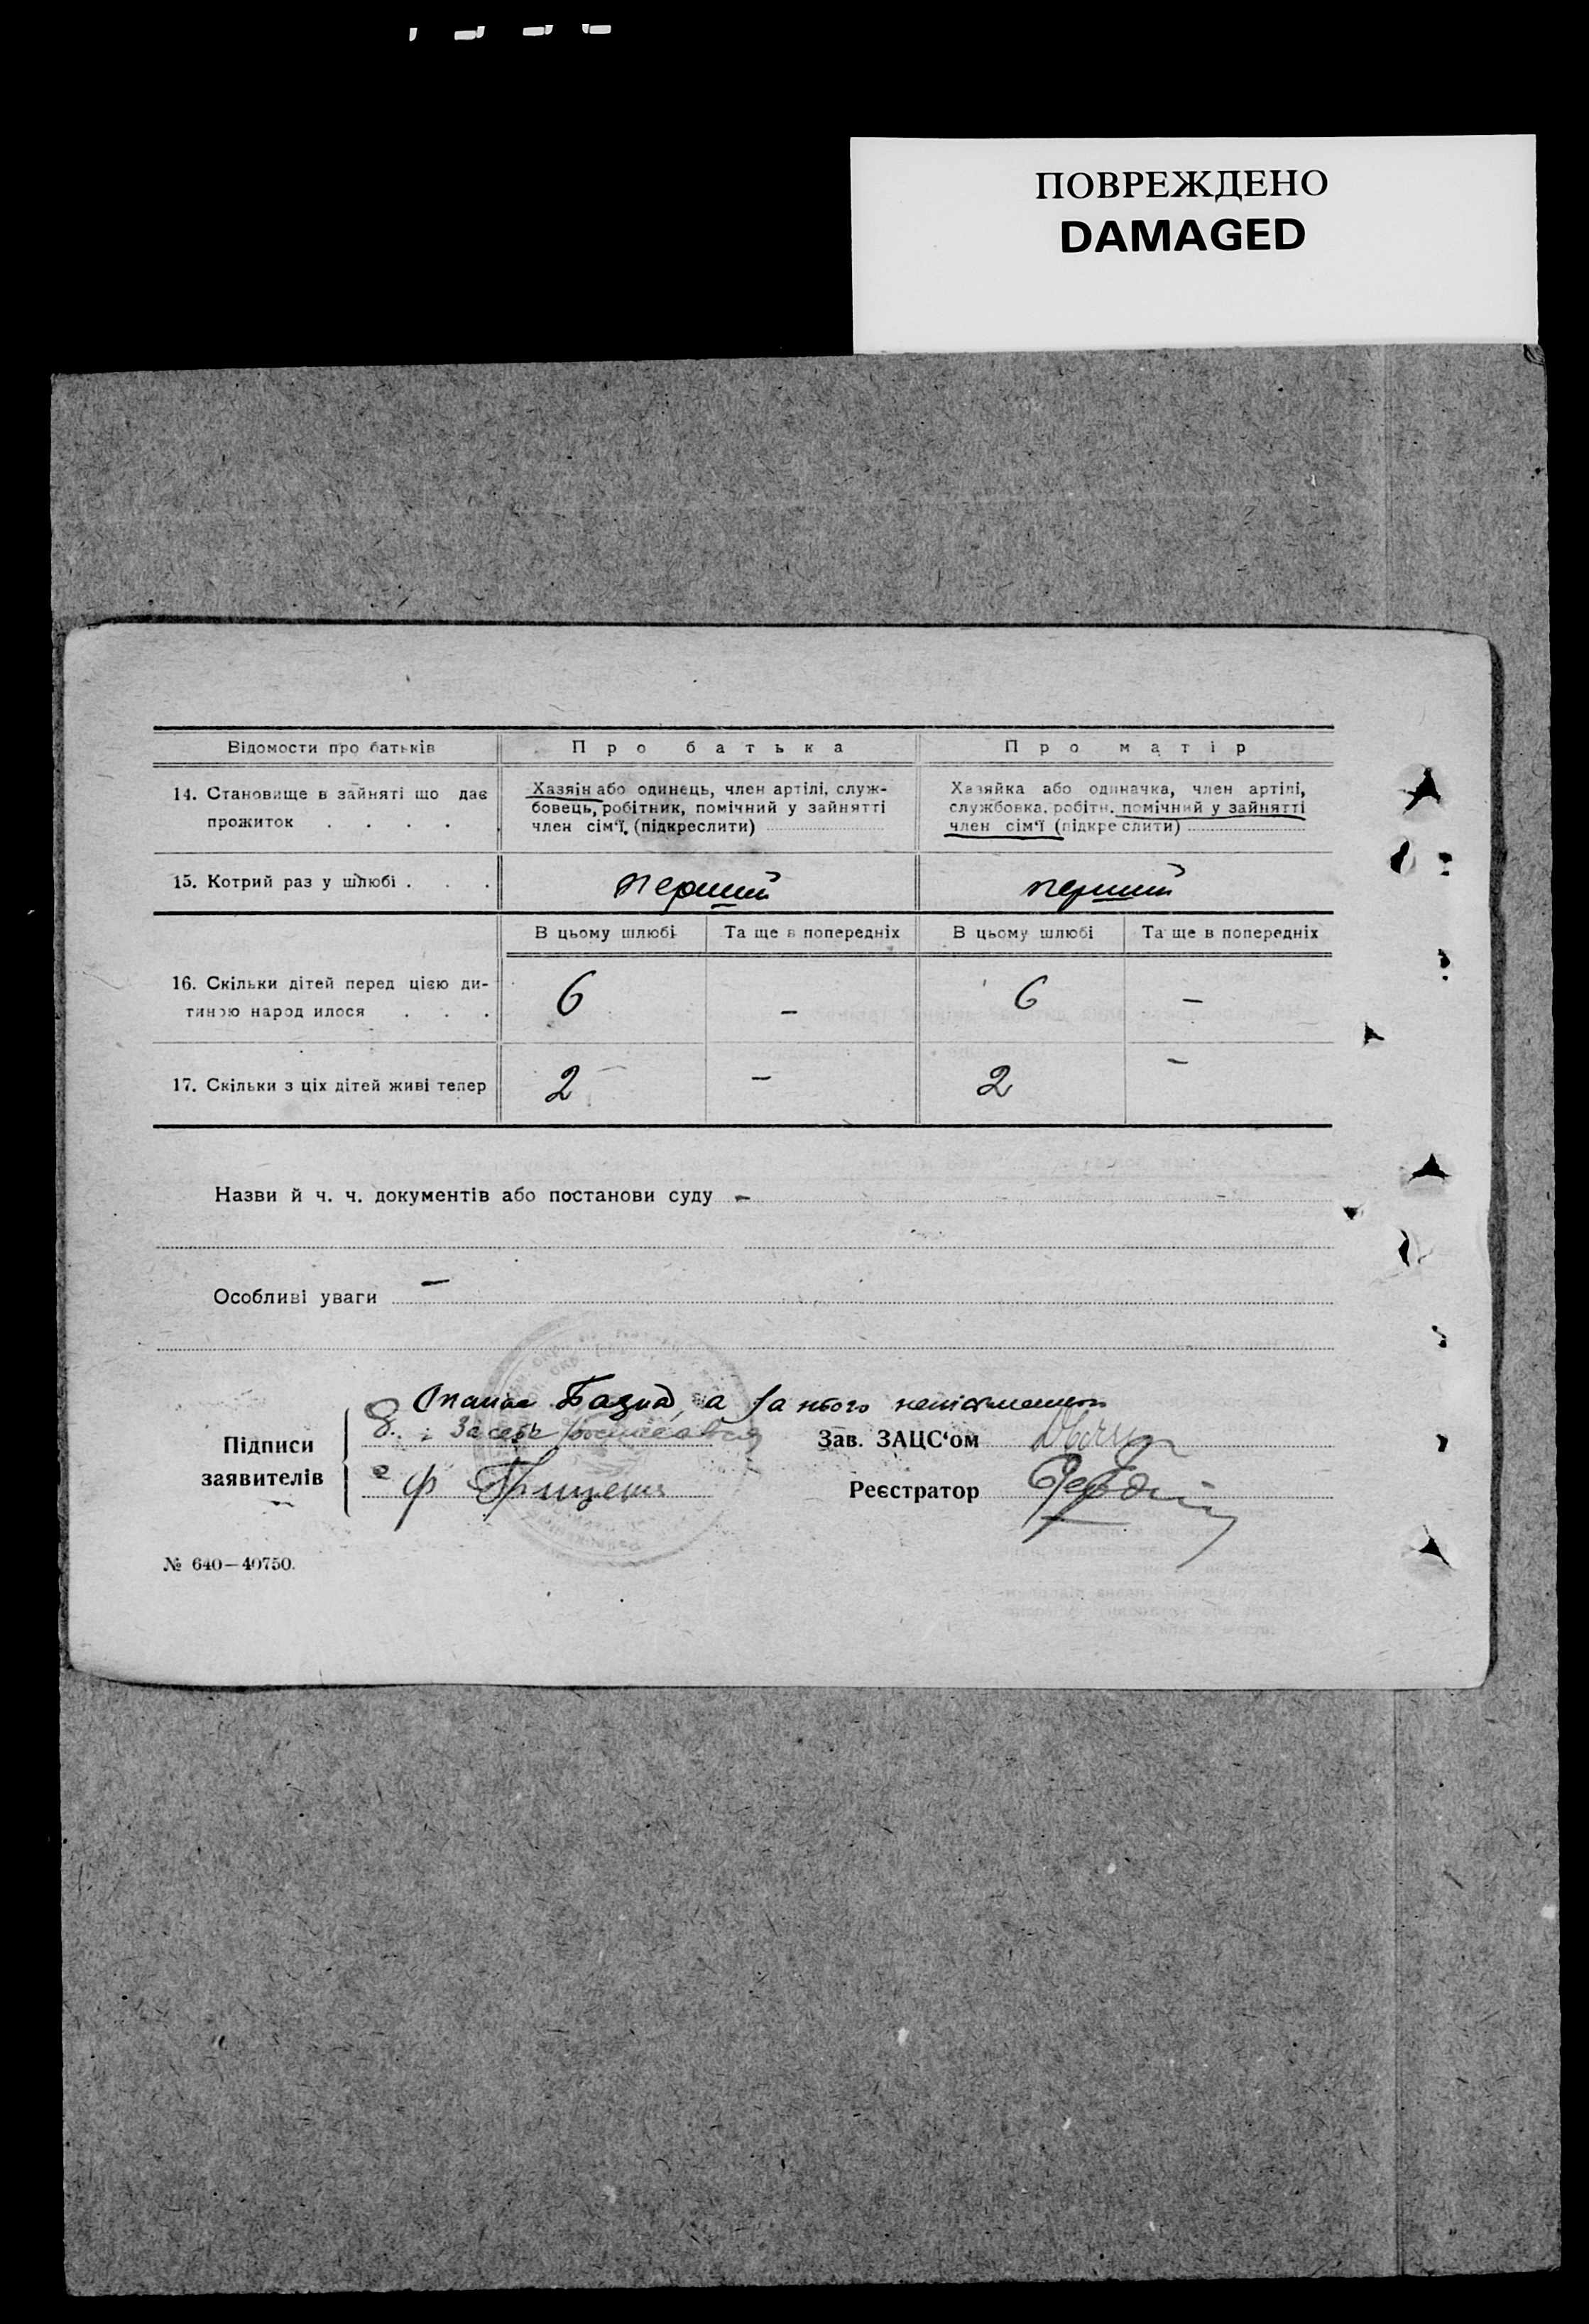 ПОВРЕЖДЕНО
DAMAGED
Відомости про батьків
Про батька
Про матір
14. Становище в зайняті що дає
прожиток . . . . .
Хазяїн або одинець, член артілі, служ-
бовець, робітник, помічний у зайнятті
член сім'ї, (підкреслити)
Хазяйка або одиначка, член артілі,
службовка, робітн. помічний у зайнятті
член сім'ї (підкреслити)
15. Котрий раз у шлюбі . . .
перший
перший
В цьому шлюбі
Та ще в попередніх
В цьому шлюбі
Та ще в попередніх
16. Скільки дітей перед цією ди-
тиною народилося . . .
6
–
6
–
17. Скільки з ціх дітей живі тепер
2
–
2
–
Назви й ч. ч. документів або постанови суду –
Особливі уваги –
а за нього неписьменного
Підписи
заявителів
За себе
Зав. ЗАЦС'ом
Ф
Реєстратор
№ 640–40750.